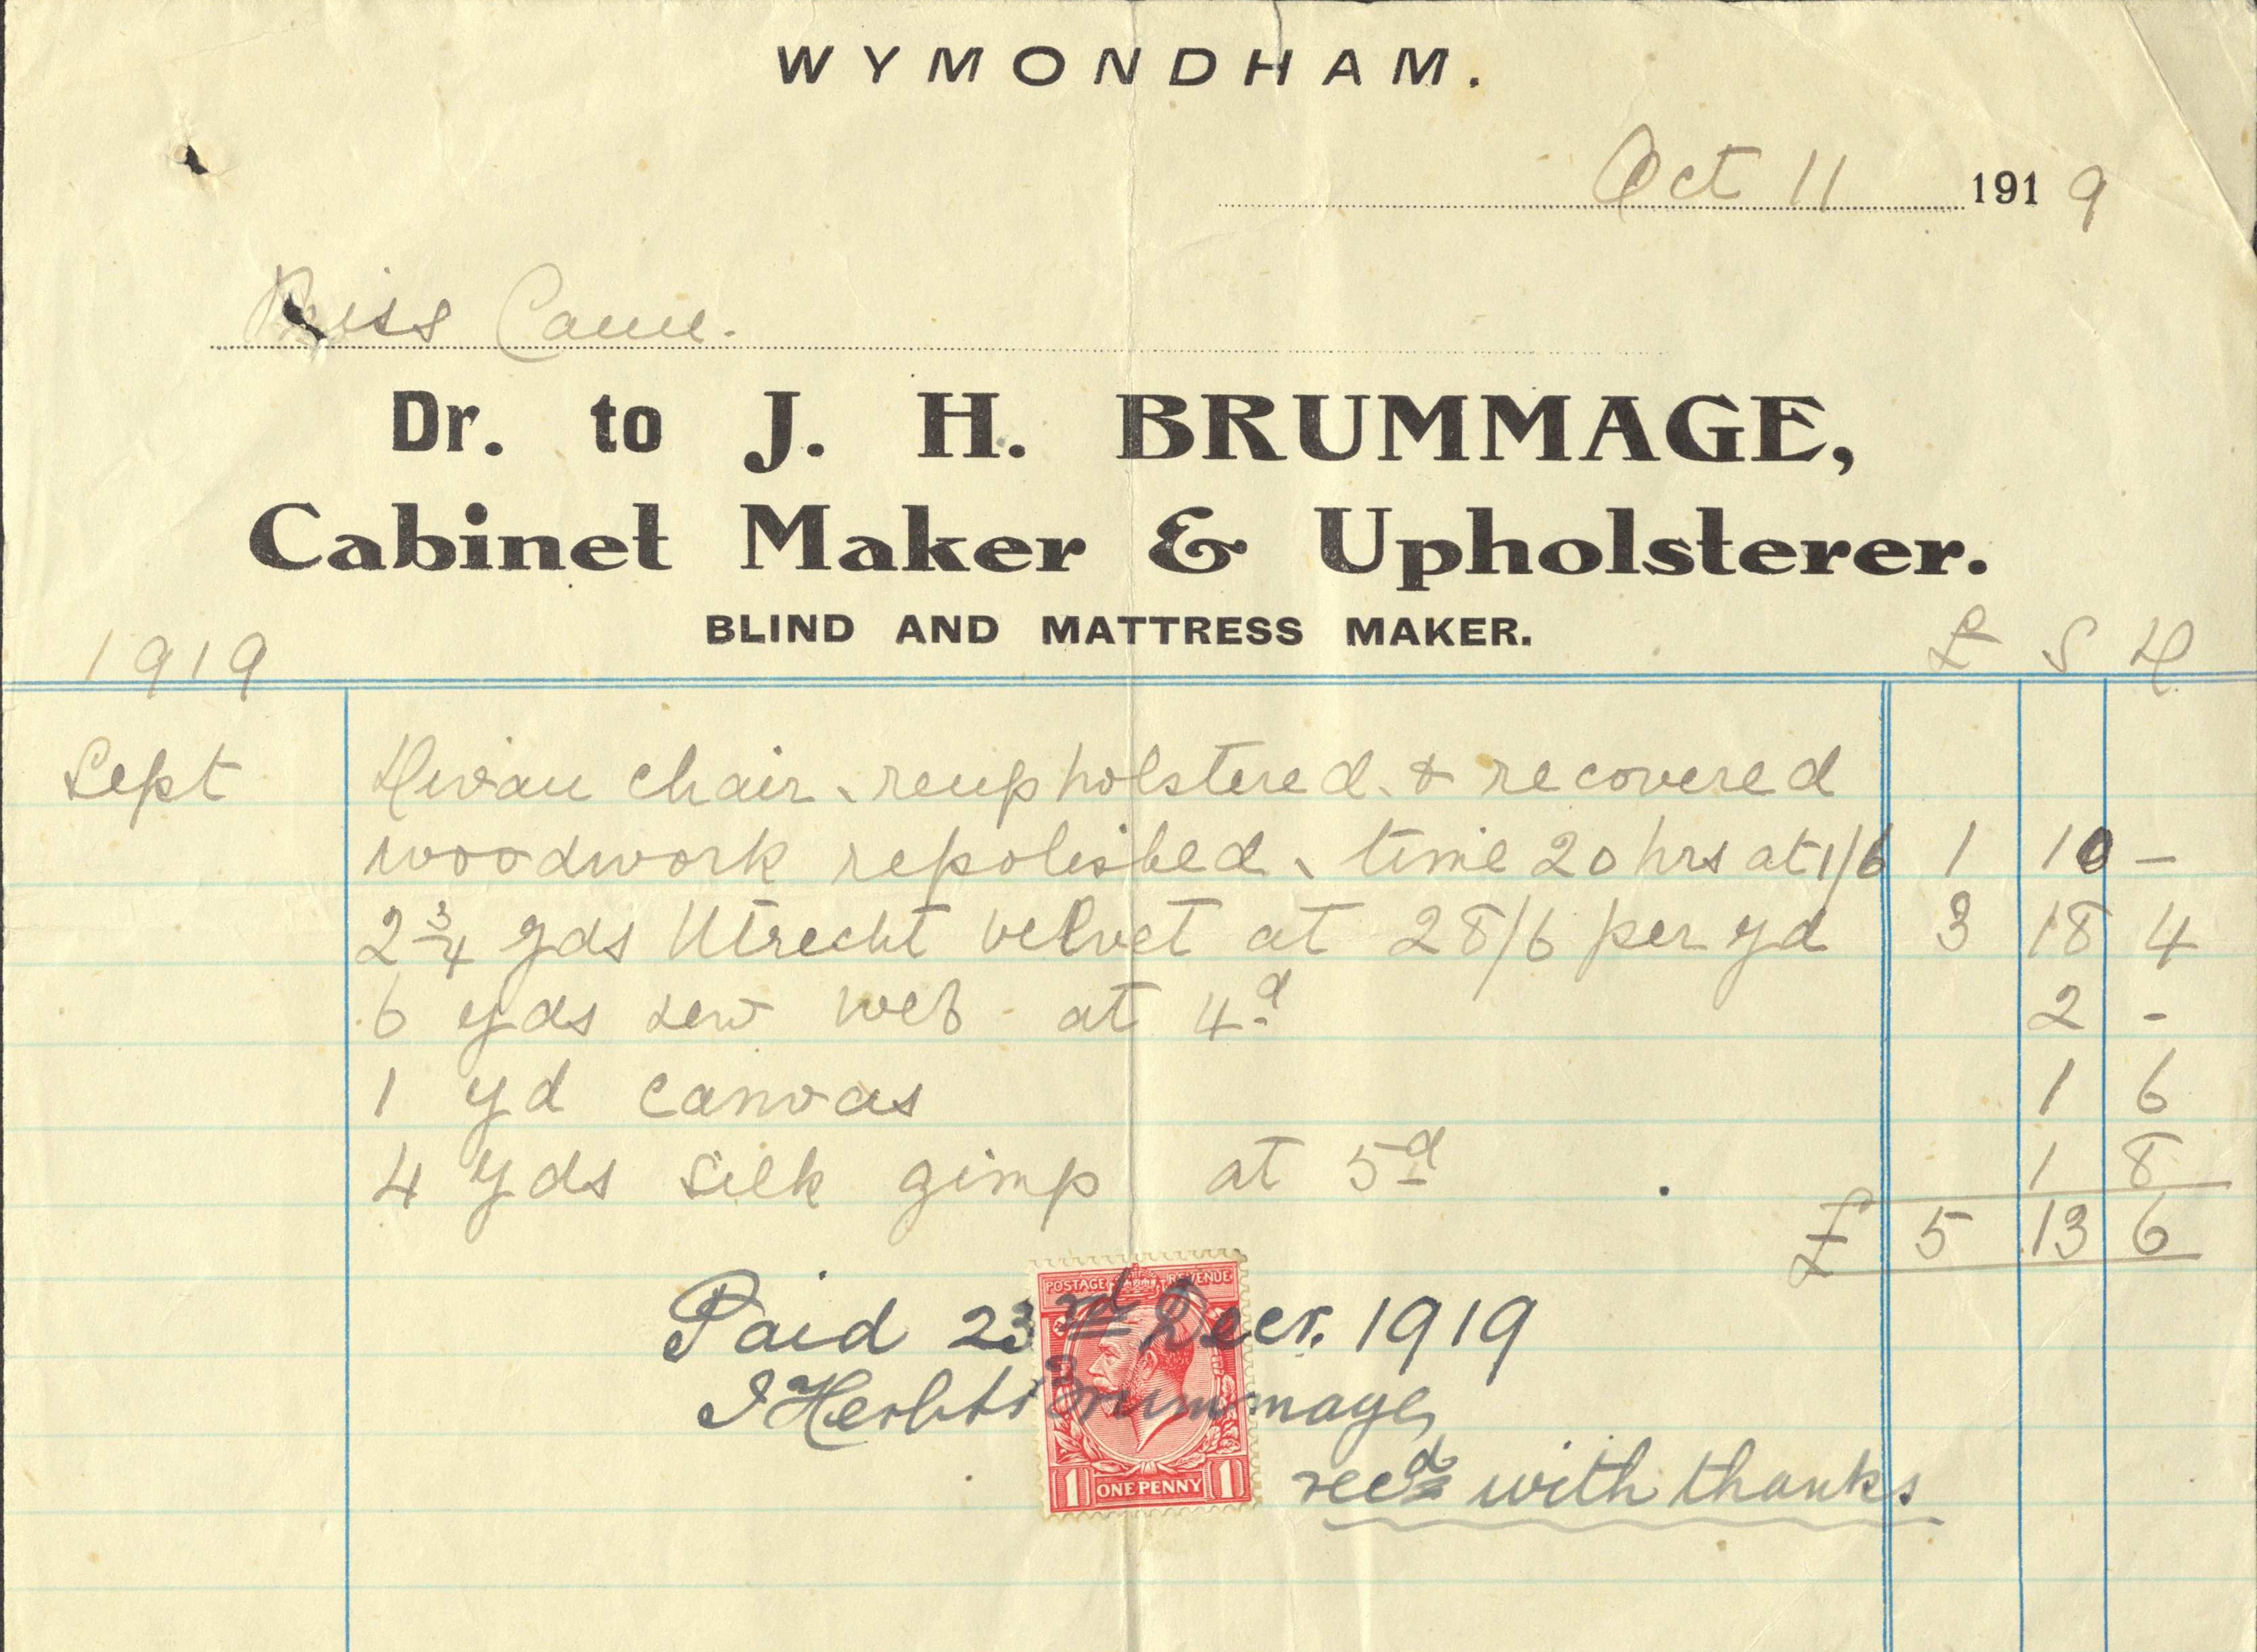 WYMONDHAM.
Oct 11 1919
Miss Cane.
Dr. to J. H. BRUMMAGE,
Cabinet Maker & Upholsterer.
BLIND AND MATTRESS MAKER.
1919 £ S D
Sept Divan chair reupholstered & recovered
woodwork repolished time 20 hrs at 1/6 1 10 –
2 3/4 yds Utrecht velvet at 28/6 per yd 3 18 4
6 yds new web at 4d 2 -
1 yd canvas 1 6
4 yds silk gimp at 5d 1 8
£ 5 13 6
POSTAGE REVENUE
Paid 23rd Decr. 1919
J Herbt Brummage
recd with thanks
1 ONE PENNY 1